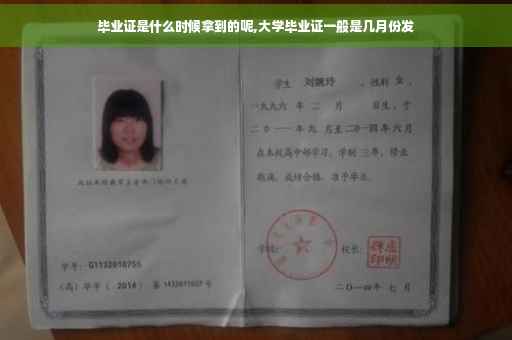 毕业证是什么时候拿到的呢,大学毕业证一般是几月份发
学生 刘婉玲 ，性别 女 ，
一九九六 年 二 月 日生，于
二〇一一年九 月至二〇一四年六月
在本校高中部学习，学制 三年，修业
期满，成绩合格，准予毕业。
学号：G1132010755
(高) 毕字 ( 2014 ) 第 1432011027 号
学校：
校长：
二〇一四年 七 月